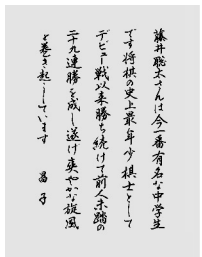 藤井聡太さんは今一番有名な中学生
です将棋の史上最年少棋士として
デビュー戦以来勝ち続けて前人未踏の
二十九連勝を成し遂げ爽やかな旋風
を巻き起こしています
昌子